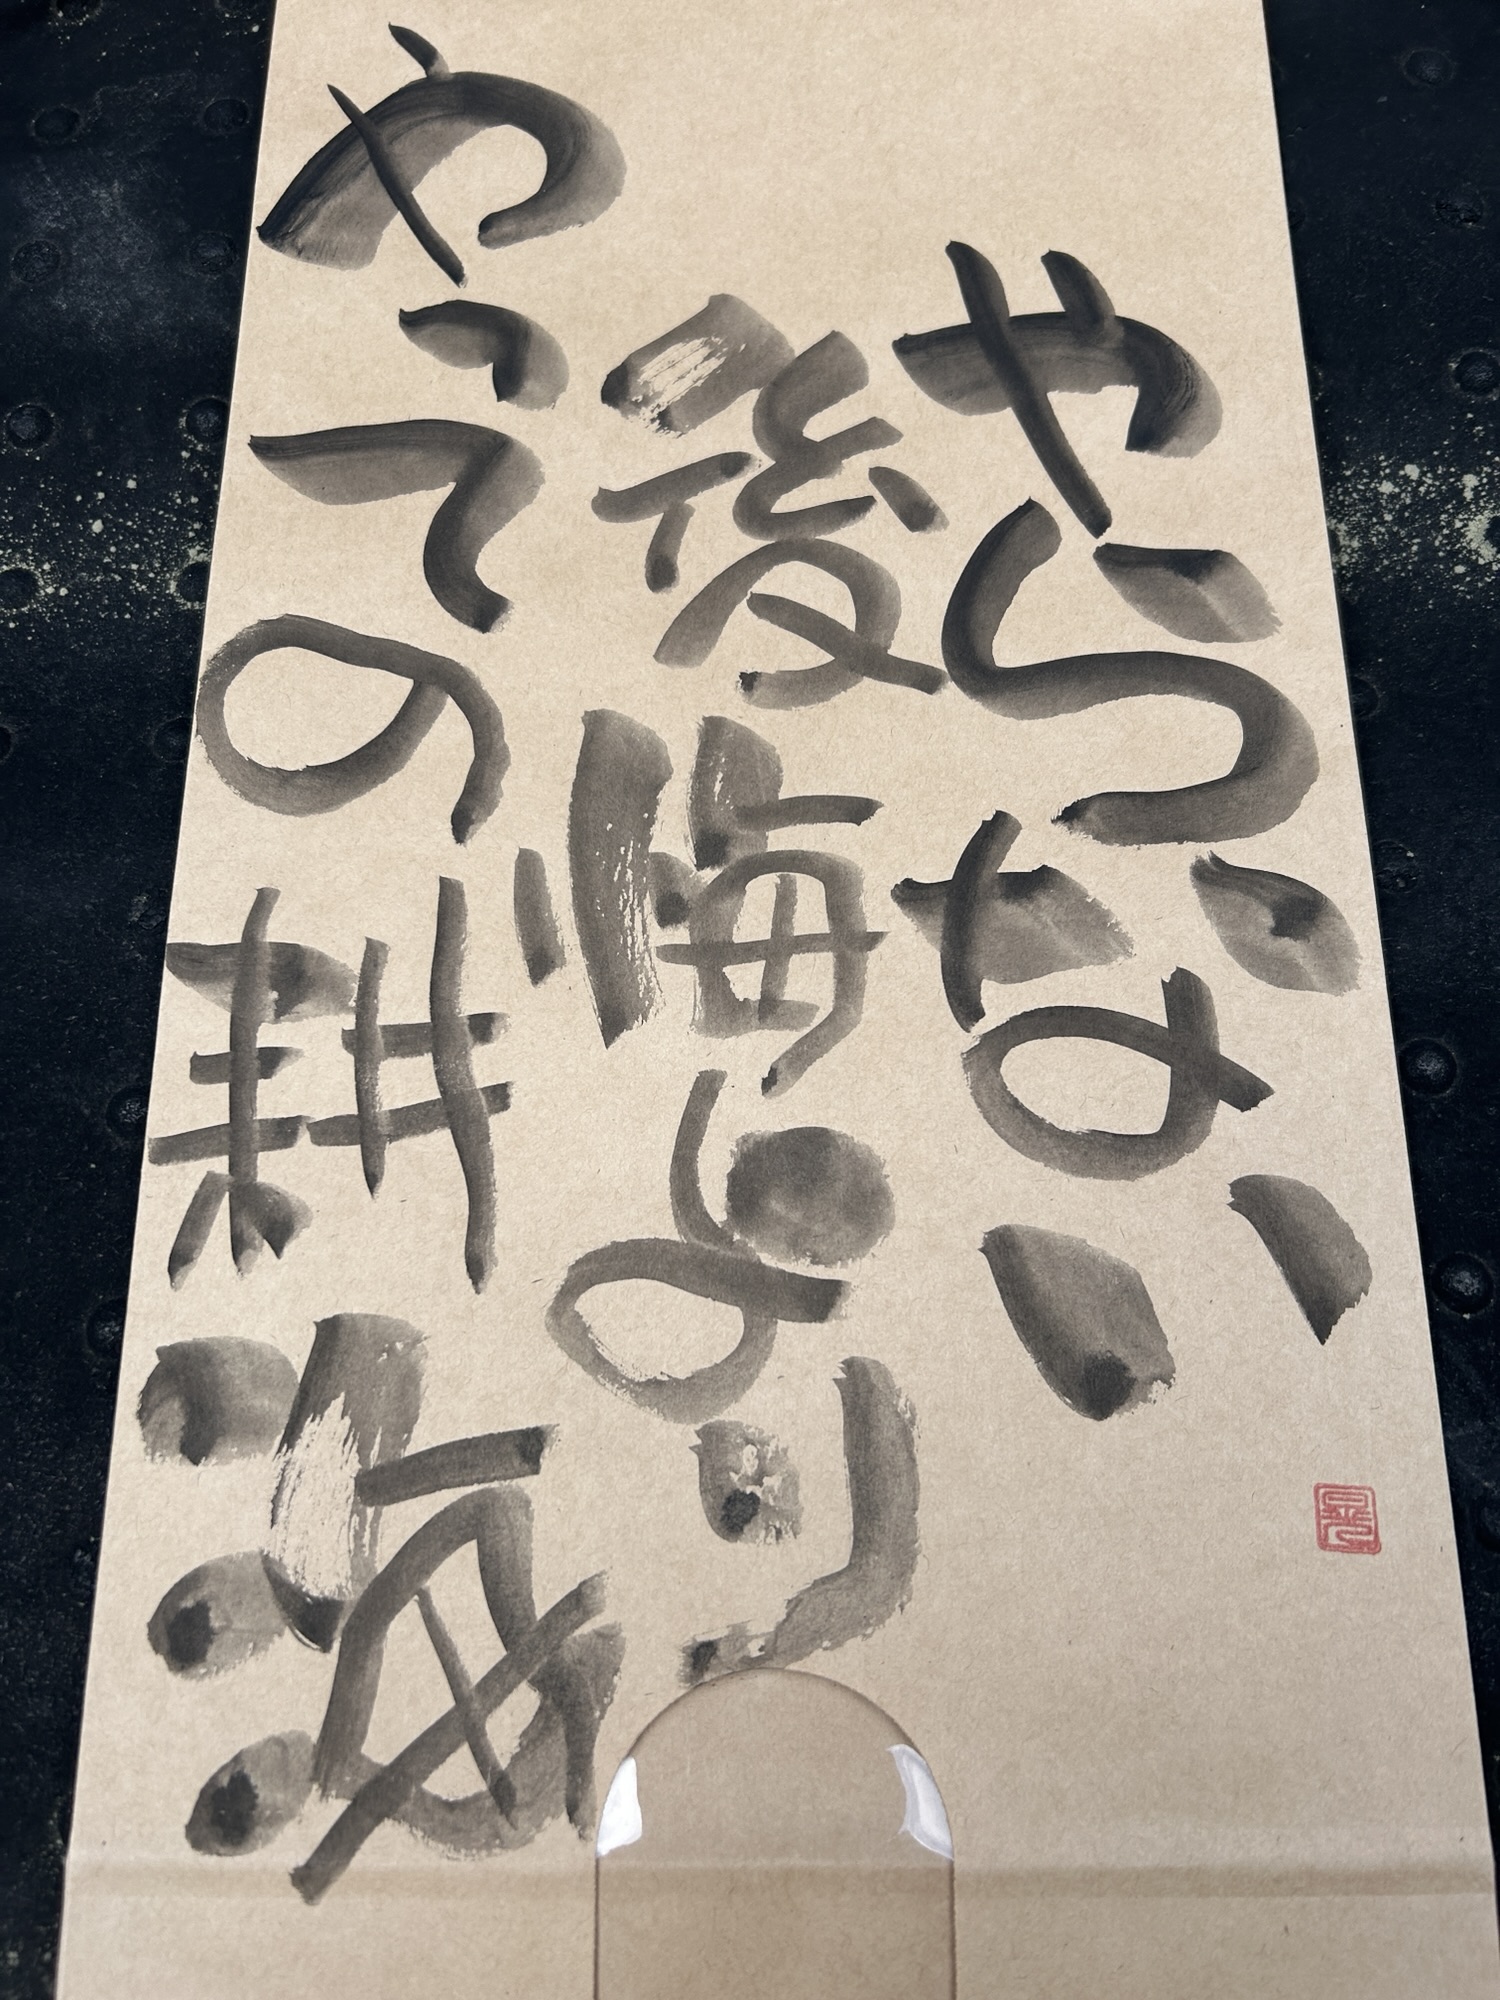 やらない
後悔より
やっての耕海